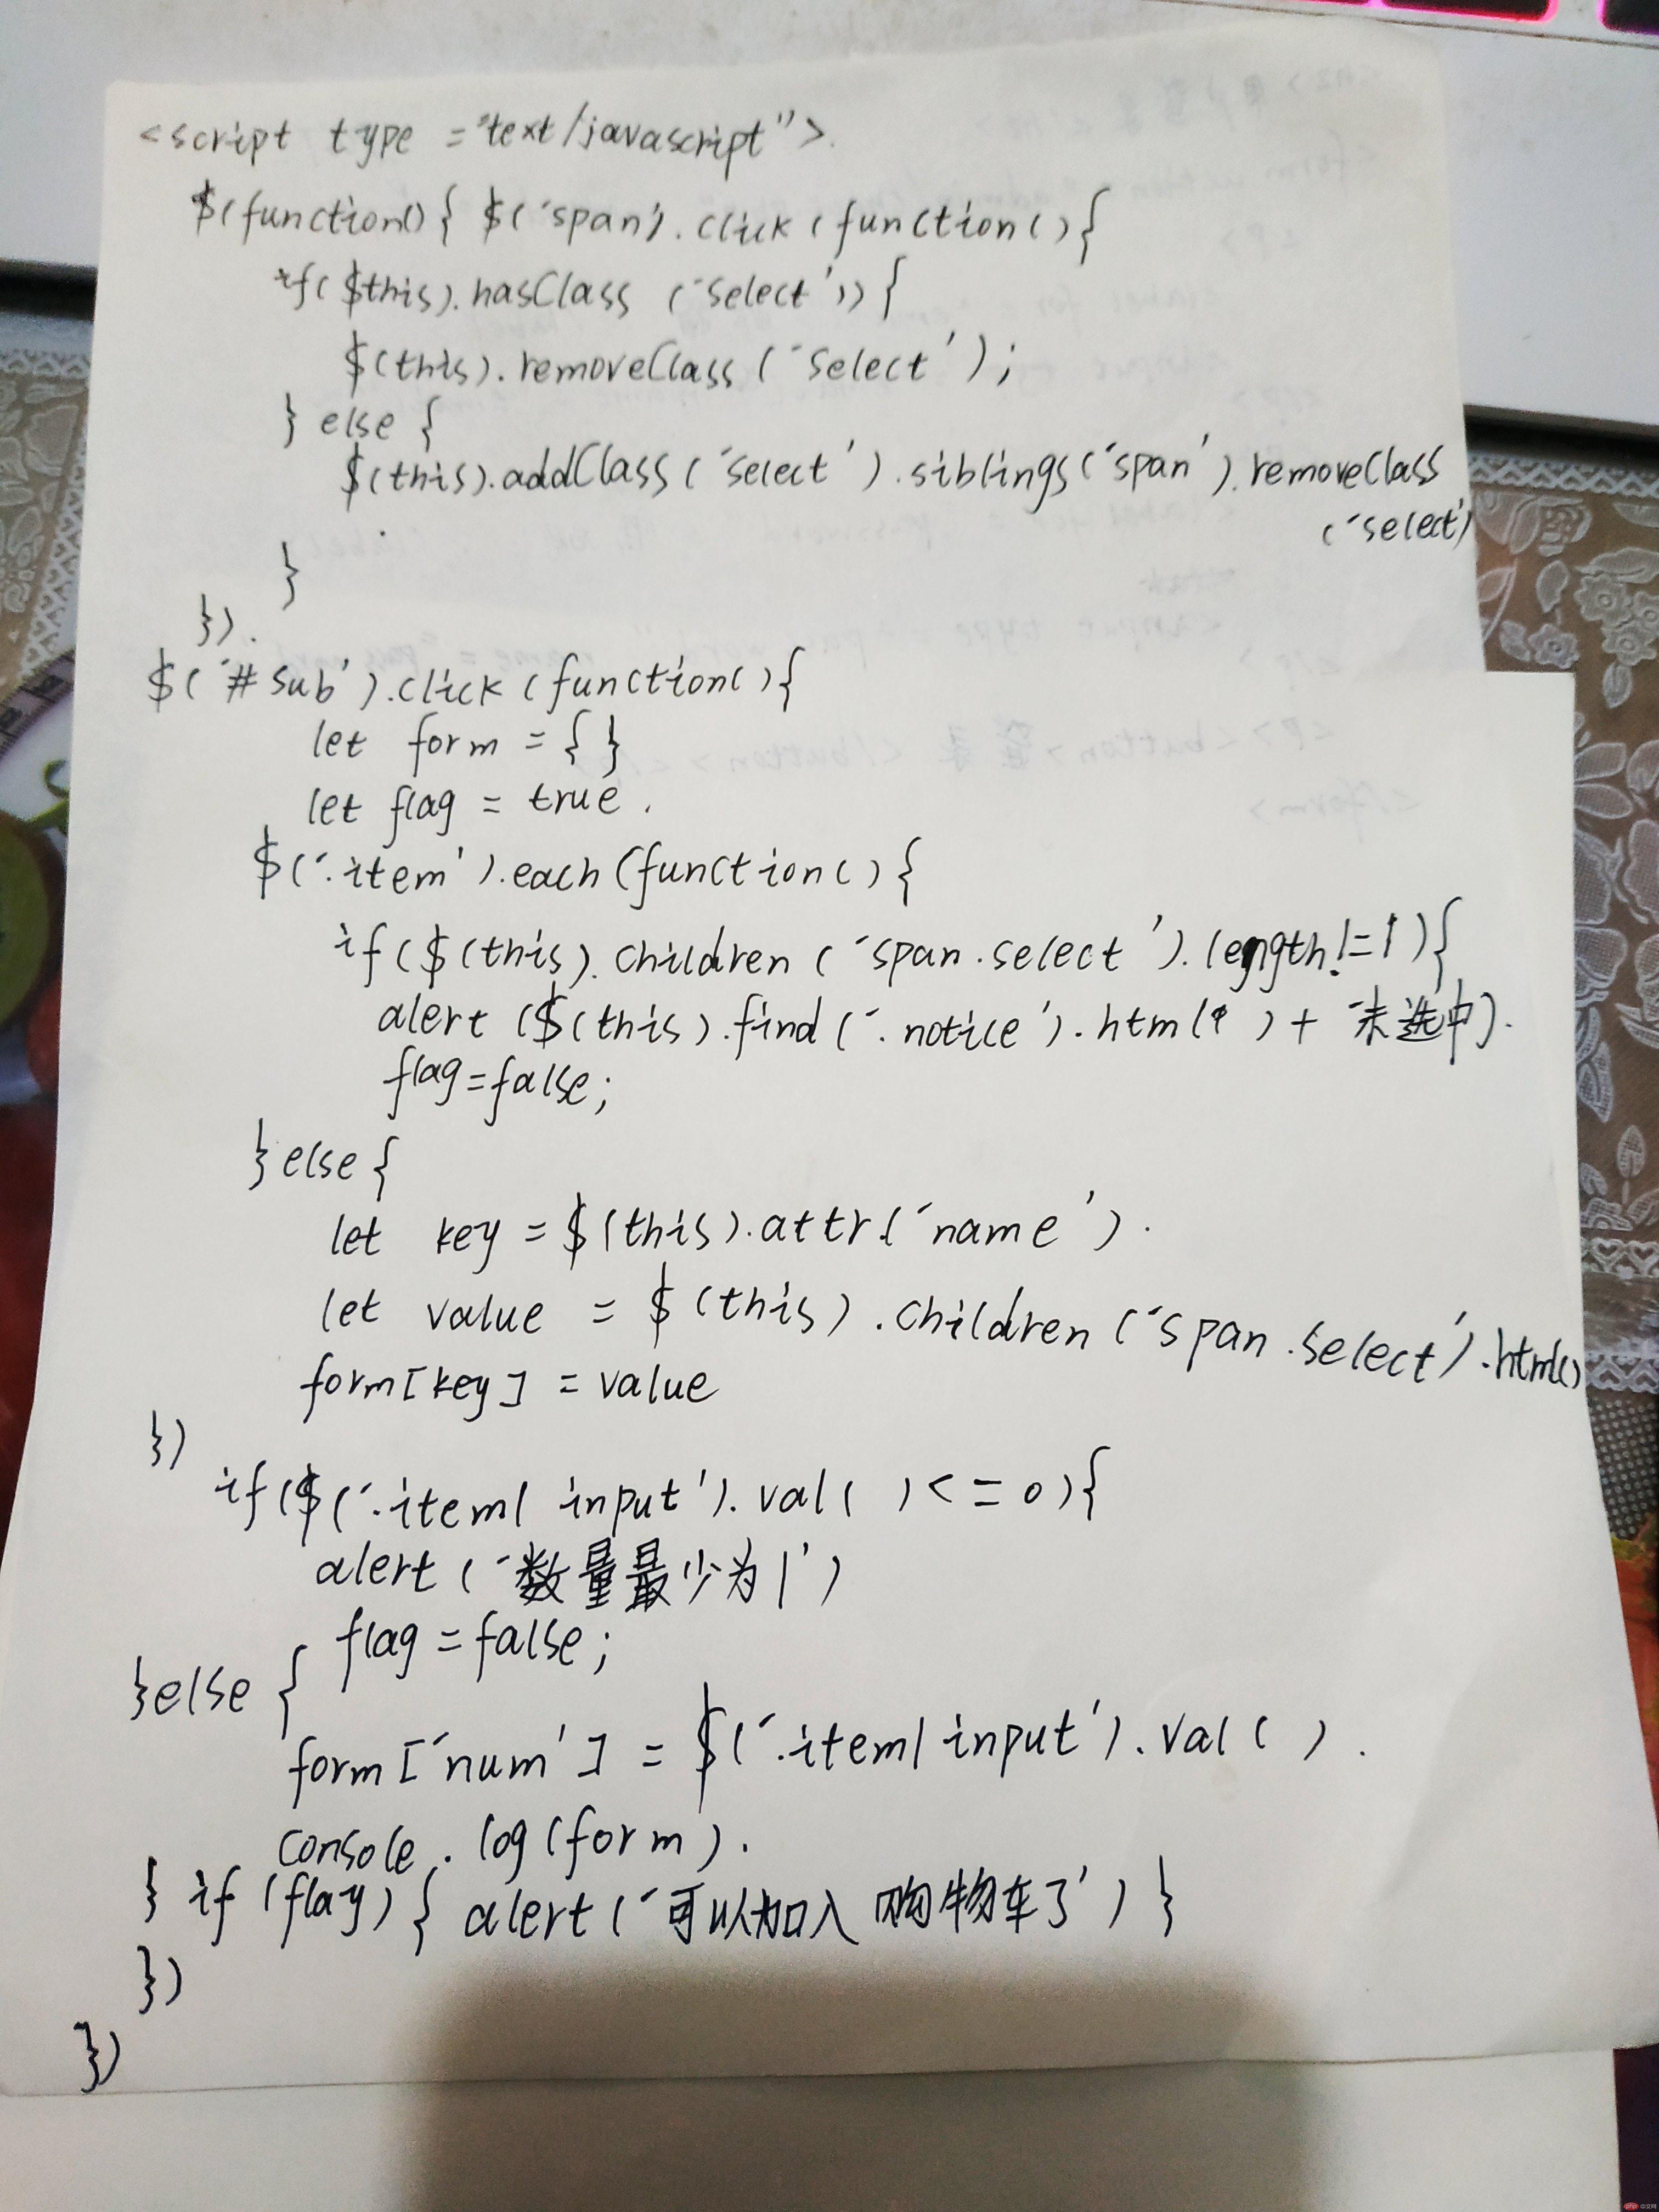 <script type ="text/javascript">.
$(function(){ $('span').click(function(){
if($this).hasClass ('select')){
$(this).removeClass('select');
} else {
$(this).addClass('select').siblings('span').removeClass
('select')
}
}).
$('#sub').click(function(){
let form = { }
let flag = true.
$('.item').each(function(){
if($(this).children('span.select').length!=1){
alert($(this).find('.notice').html( )+ '未选中).
flag=false;
}else{
let key = $(this).attr('name').
let value = $(this).children('span.select').html()
form[key] = value
})
if($('.item1 input').val( )<=0){
alert('数量最少为1')
flag=false;
}else {
form['num'] = $('.item1 input').val( ).
console.log(form).
} if (flag) { alert('可以加入购物车了') }
})
})
php 中文网